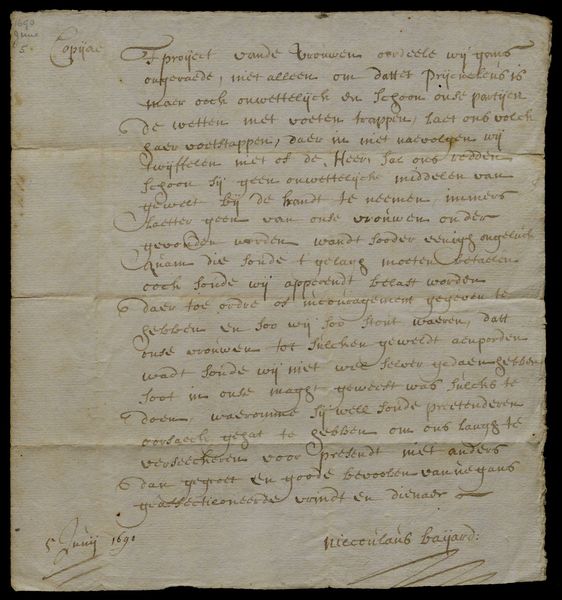 1690
June
5
Copijae
T proiject vande vrouwen oordeele wij gans
ongeraede, niet alleen om dattet Prijckeleus is
maer och onwettelijck en schoon onse partijen
de wetten met voeten trappen, laet ons volck
haer voetstappen, daer in niet naevolgen wij
twijffelen niet of de Heer sal ons redden
schoon sij geen onwettelijcke middelen van
gewelt bij de handt te neemen immers
laetter geen van onse vrouwen onder
gevonden worden wandt sooder eenigh ongeluck
quam die sonde t gelagh moeten betalen
och sonde wij apperendt belast worden
daer toe ordre of incouragement gegeven te
hebben en soo wij soo stout waeren, datt
onse vrouwen tot sulcken geweldt aenporden
wadt sonde wij niet wel selver gedaen hebben
soot in onse maght geweest was sulcks te
doen, waeromme sij well sonde pretenderen
oorsaeck gehat te hebben om ons langh te
verseeckeren voor presendt niet anders
dan gegroet en goode bevoolen van uE gans
geaffectioneerde vrindt en dienaer
5 Junij 1690
Niccolaus bayard: